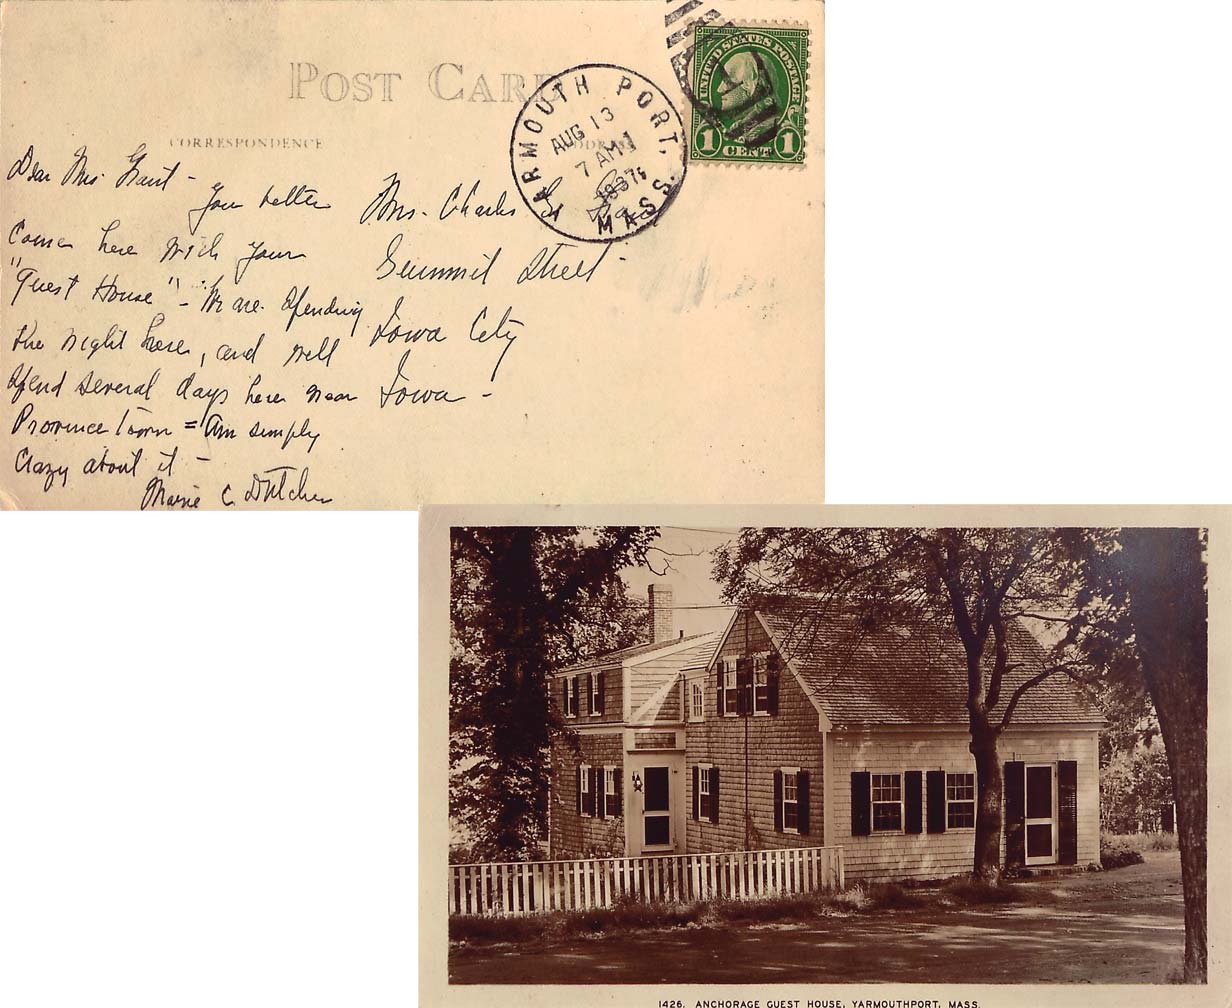 POST CARD
CORRESPONDENCE
YARMOUTH PORT, MASS.
AUG 13
7 AM
1937
UNITED STATES POSTAGE
1 CENT 1
Dear Mrs. Grant -
You better
come here with your
"Guest House" - We are spending
the night here, and will
spend several days here near
Province Town = Am simply
Crazy about it -
Marie C. Dutcher
Mrs. Charles
Summit Street -
Iowa City
Iowa -
1426. ANCHORAGE GUEST HOUSE, YARMOUTHPORT, MASS.